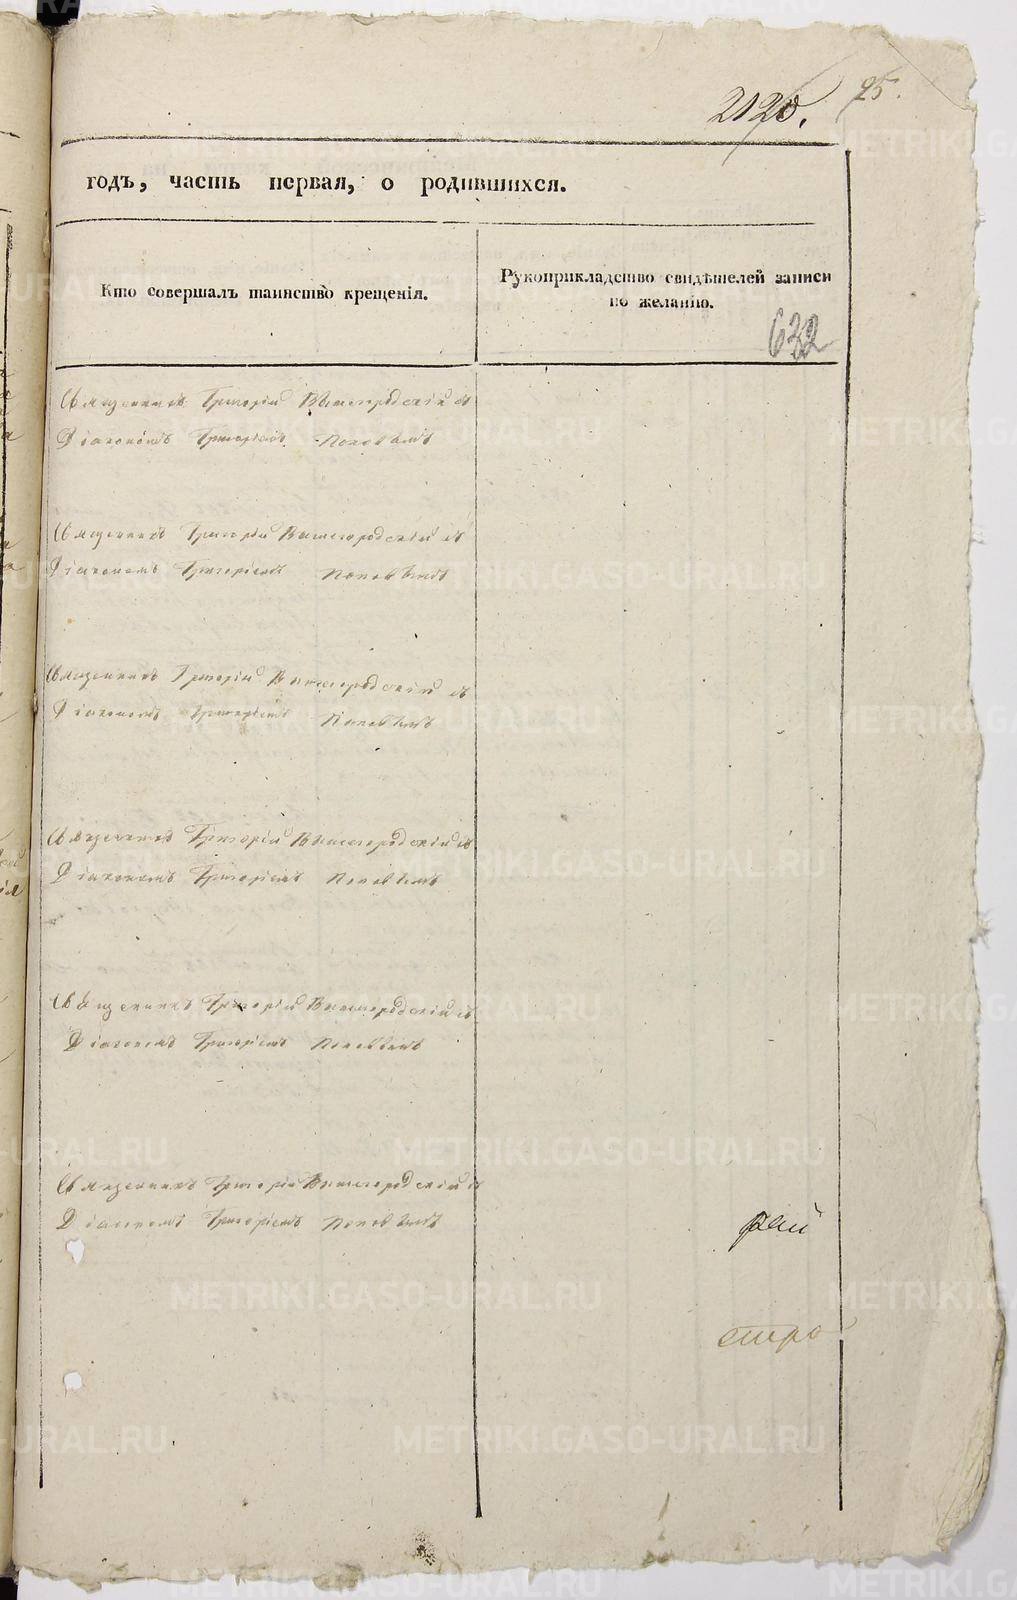 2120.
25.
годъ, часть первая, о родившихся.
Кто совершалъ таинство крещенія.
Рукоприкладство свидѣтелей записи
по желанію.
632
Священникъ Григорій Вышегородскій съ
Діакономъ Григоріемъ Поповымъ
Священникъ Григорій Вышегородскій съ
Діакономъ Григоріемъ Поповымъ
Священникъ Григорій Вышегородскій съ
Діакономъ Григоріемъ Поповымъ
Священникъ Григорій Вышегородскій съ
Діакономъ Григоріемъ Поповымъ
Священникъ Григорій Вышегородскій съ
Діакономъ Григоріемъ Поповымъ
Священникъ Григорій Вышегородскій съ
Діакономъ Григоріемъ Поповымъ
METRIKI.GASO-URAL.RU